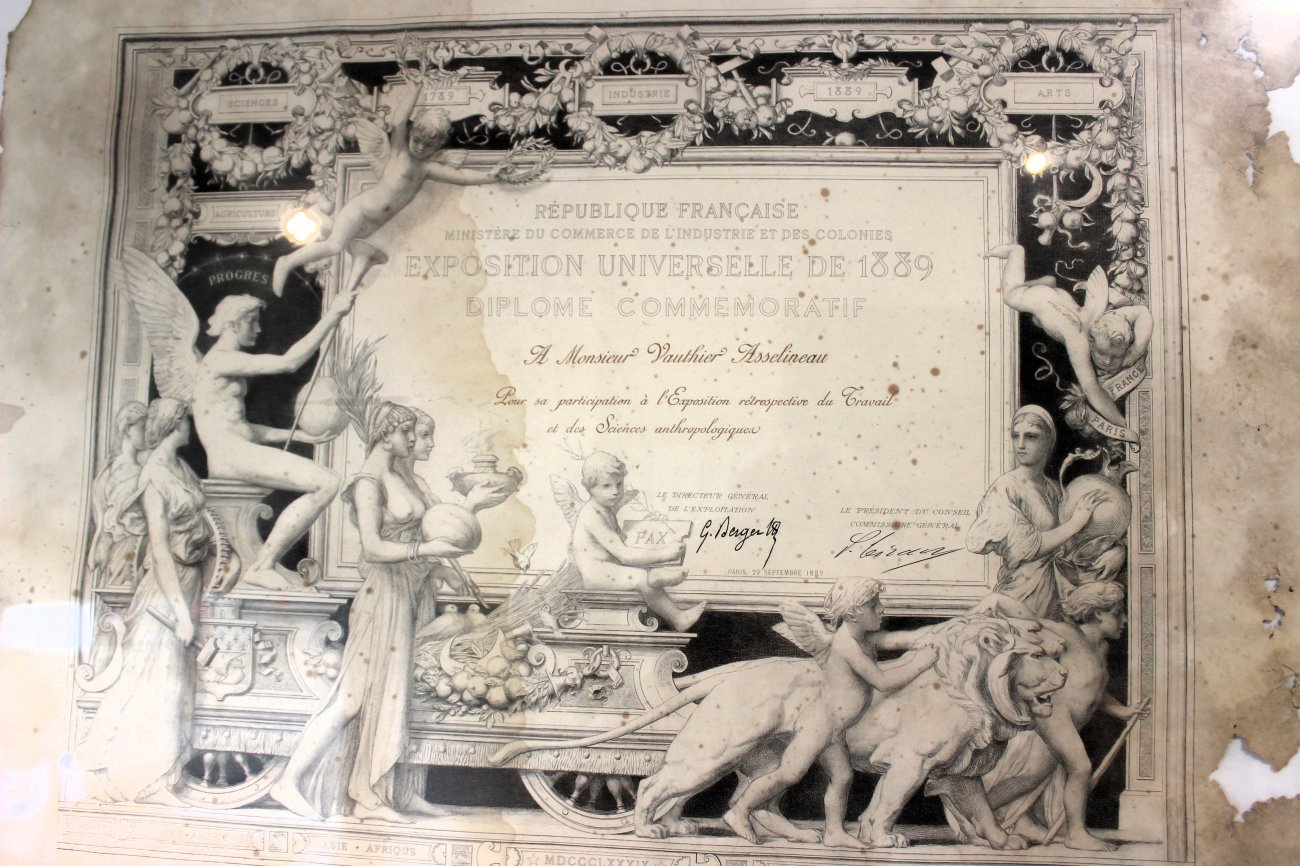 SCIENCES
1789
INDUSTRIE
1889
ARTS
AGRICULTURE
PROGRES
RÉPUBLIQUE FRANÇAISE
MINISTÈRE DU COMMERCE DE L'INDUSTRIE ET DES COLONIES
EXPOSITION UNIVERSELLE DE 1889
DIPLOME COMMEMORATIF
A Monsieur Vauthier Asselineau
Pour sa participation à l'Exposition rétrospective du Travail
et des Sciences anthropologiques
FRANCE
PARIS
LE DIRECTEUR GÉNÉRAL
DE L'EXPLOITATION
G. Berger
LE PRÉSIDENT DU CONSEIL
COMMISSAIRE GÉNÉRAL
PAX
PARIS, 29 SEPTEMBRE 1889
ASIE - AFRIQUE
MDCCCLXXXIX